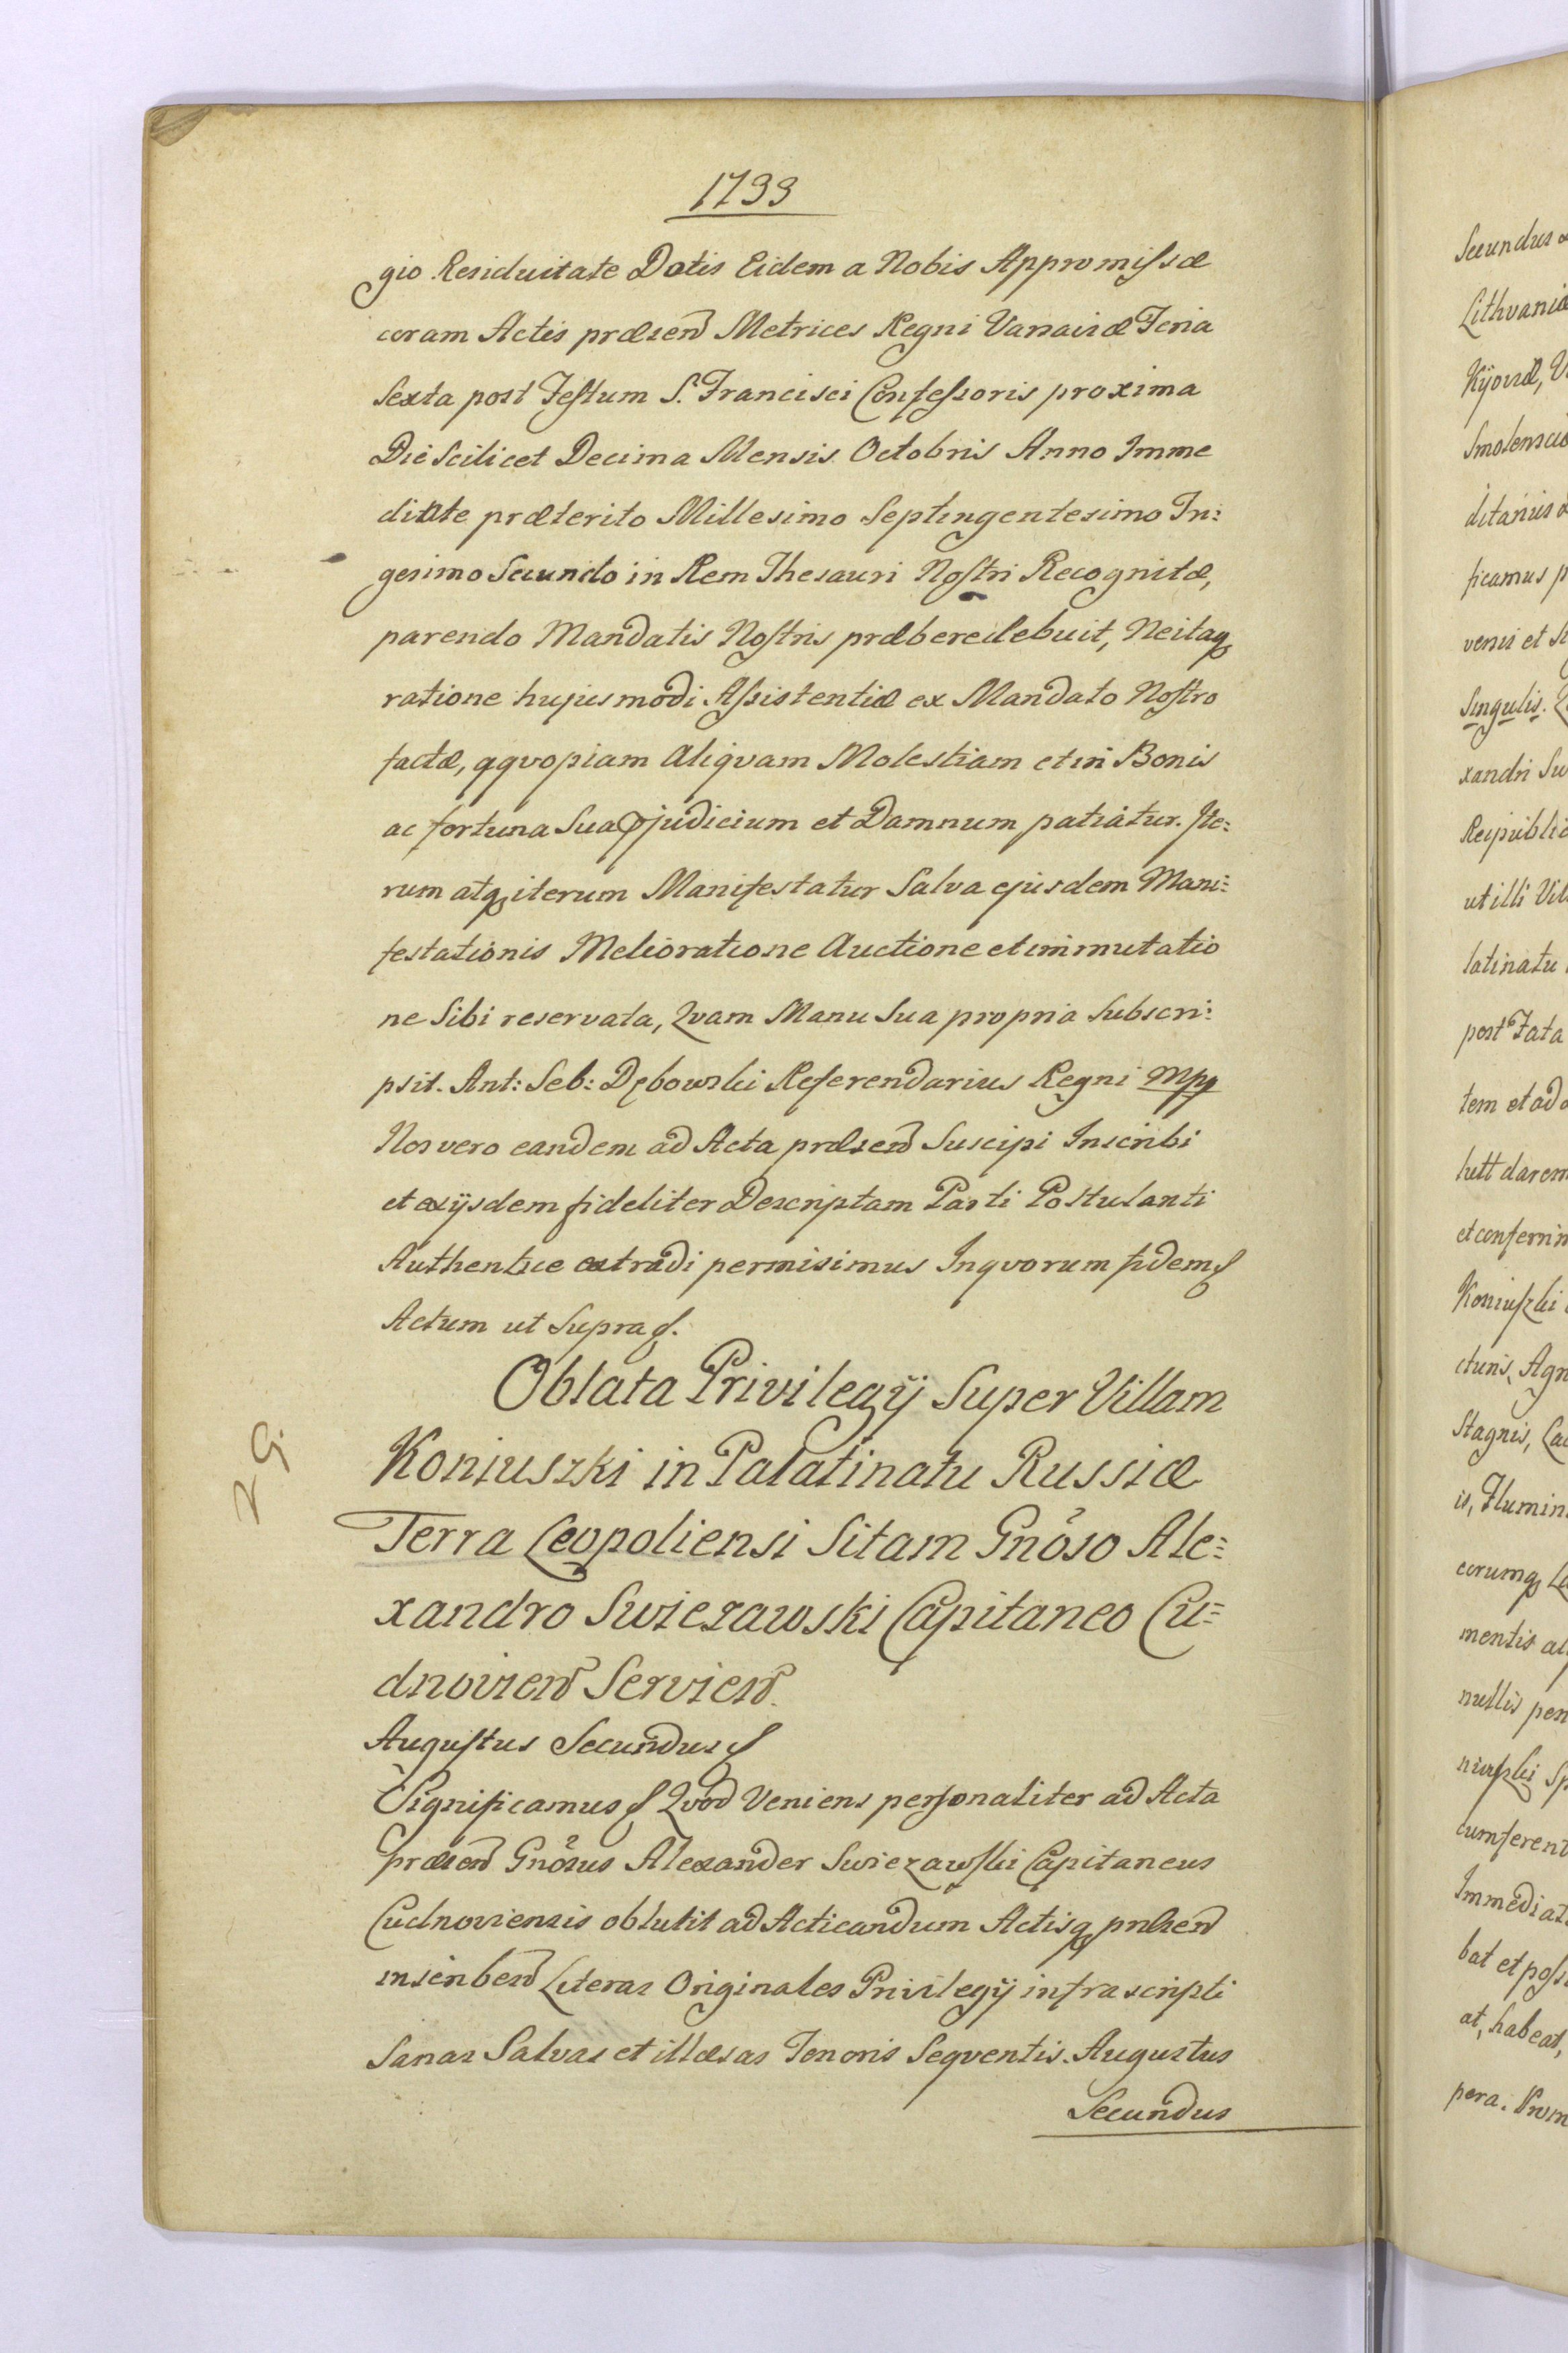 1733
gio Residuitate Dotis Eidem a Nobis Appromissæ
coram Actis præsen Metrices Regni Varsaviæ Feria
Sexta post Festum S. Francisci Confessoris proxima
Die Scilicet Decima Mensis Octobris Anno Imme
diate præterito Millesimo Septingentesimo Tri:
gesimo Secundo in Rem Thesauri Nostri Recognitæ,
parendo Mandatis Nostris præbere debuit, Ne itaq
ratione hujusmodi Assistentiæ ex Mandato Nostro
factæ, a qvopiam Aliqvam Molestiam et in Bonis
ac fortuna Sua judicium et Damnum patiatur. Ite:
rum atq iterum Manifestatur Salva ejusdem Mani:
festationis Melioratione Auctione et immutatio
ne Sibi reservata, Qvam Manu Sua propria Subscri:
psit. Ant: Seb: Dębowski Referendarius Regni mpp
Nos vero eandem ad Acta præsen Suscipi Inscribi
et ex ijsdem fideliter Descriptam Parti Postulanti
Authentice extradi permisimus In qvorum fidem
Actum ut Supra.
Oblata Privilegij Super Villam
Koniuszki in Palatinatu Russiæ
Terra Leopoliensi Sitam Gnoso Ale:
xandro Swiezawski Capitaneo Cu:
dnovien Servien.
Augustus Secundus
Significamus Qvod Veniens personaliter ad Acta
præsen Gnosus Alexander Swiezawski Capitaneus
Cudnoviensis obtulit ad Acticandum Actisq præsen
inscriben Literas Originales Privilegij infrascripti
Sanas Salvas et illæsas Tenoris Seqventis. Augustus
Secundus
29.
Secundus
Lithvaniæ
Kijoviæ,
Smolensciæ
ditarius
ficamus
venit et
Singulis.
xandri
Reipublicæ
ut illi
latinatu
post Fata
tem et ad
lutt darem
et conferrim
Koniuszki
cturis, Agr
Stagnis, Lac
is, Flumin
eorumq
mentis
nullis
niuszki
cumferent
Immediat
bat et
at, habeat,
pera.